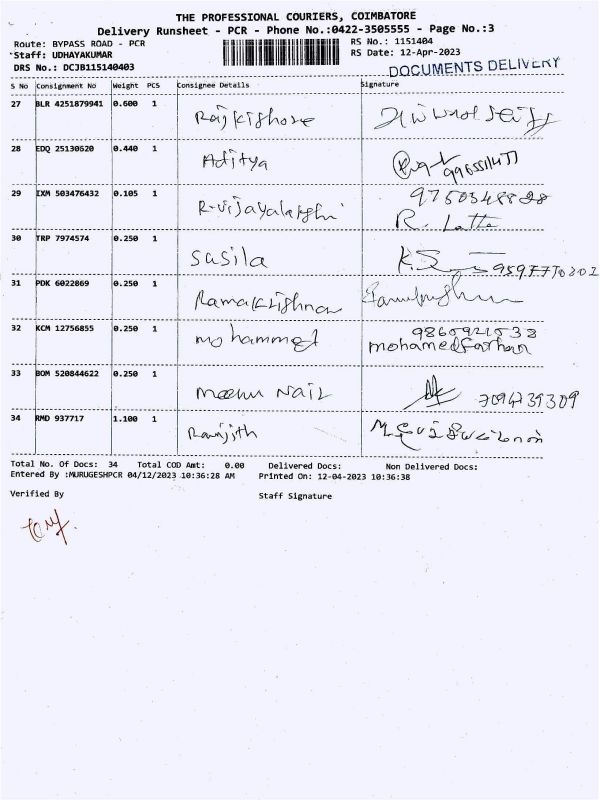 THE PROFESSIONAL COURIERS, COIMBATORE
Delivery Runsheet - PCR - Phone No.:0422-3505555 - Page No.:3
Route: BYPASS ROAD - PCR
RS No.: 1151404
Staff: UDHAYAKUMAR
RS Date: 12-Apr-2023
DRS No.: DCJB115140403
DOCUMENTS DELIVERY
S No Consignment No Weight PCS Consignee Details Signature
27 BLR 4251879941 0.600 1 Rajkishore
28 EDQ 25130620 0.440 1 Aditya
29 IXM 503476432 0.105 1 R.vijayalakshi
R. Latha
30 TRP 7974574 0.250 1 Sasila
31 PDK 6022869 0.250 1 Ramakrishnan
32 KCM 12756855 0.250 1 mohammed
mohamedfarhan
33 BOM 520844622 0.250 1 meenu Nair
34 RMD 937717 1.100 1 Ranjith
Total No. Of Docs: 34 Total COD Amt: 0.00 Delivered Docs: Non Delivered Docs:
Entered By :MURUGESHPCR 04/12/2023 10:36:28 AM Printed On: 12-04-2023 10:36:38
Verified By Staff Signature